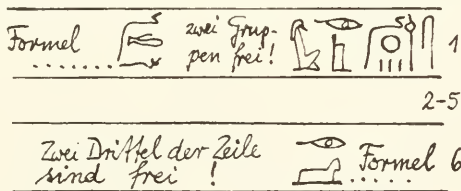 Formel ...... zwei Grup-
pen frei! 1
2-5
Zwei Drittel der Zeile
sind frei ! Formel 6